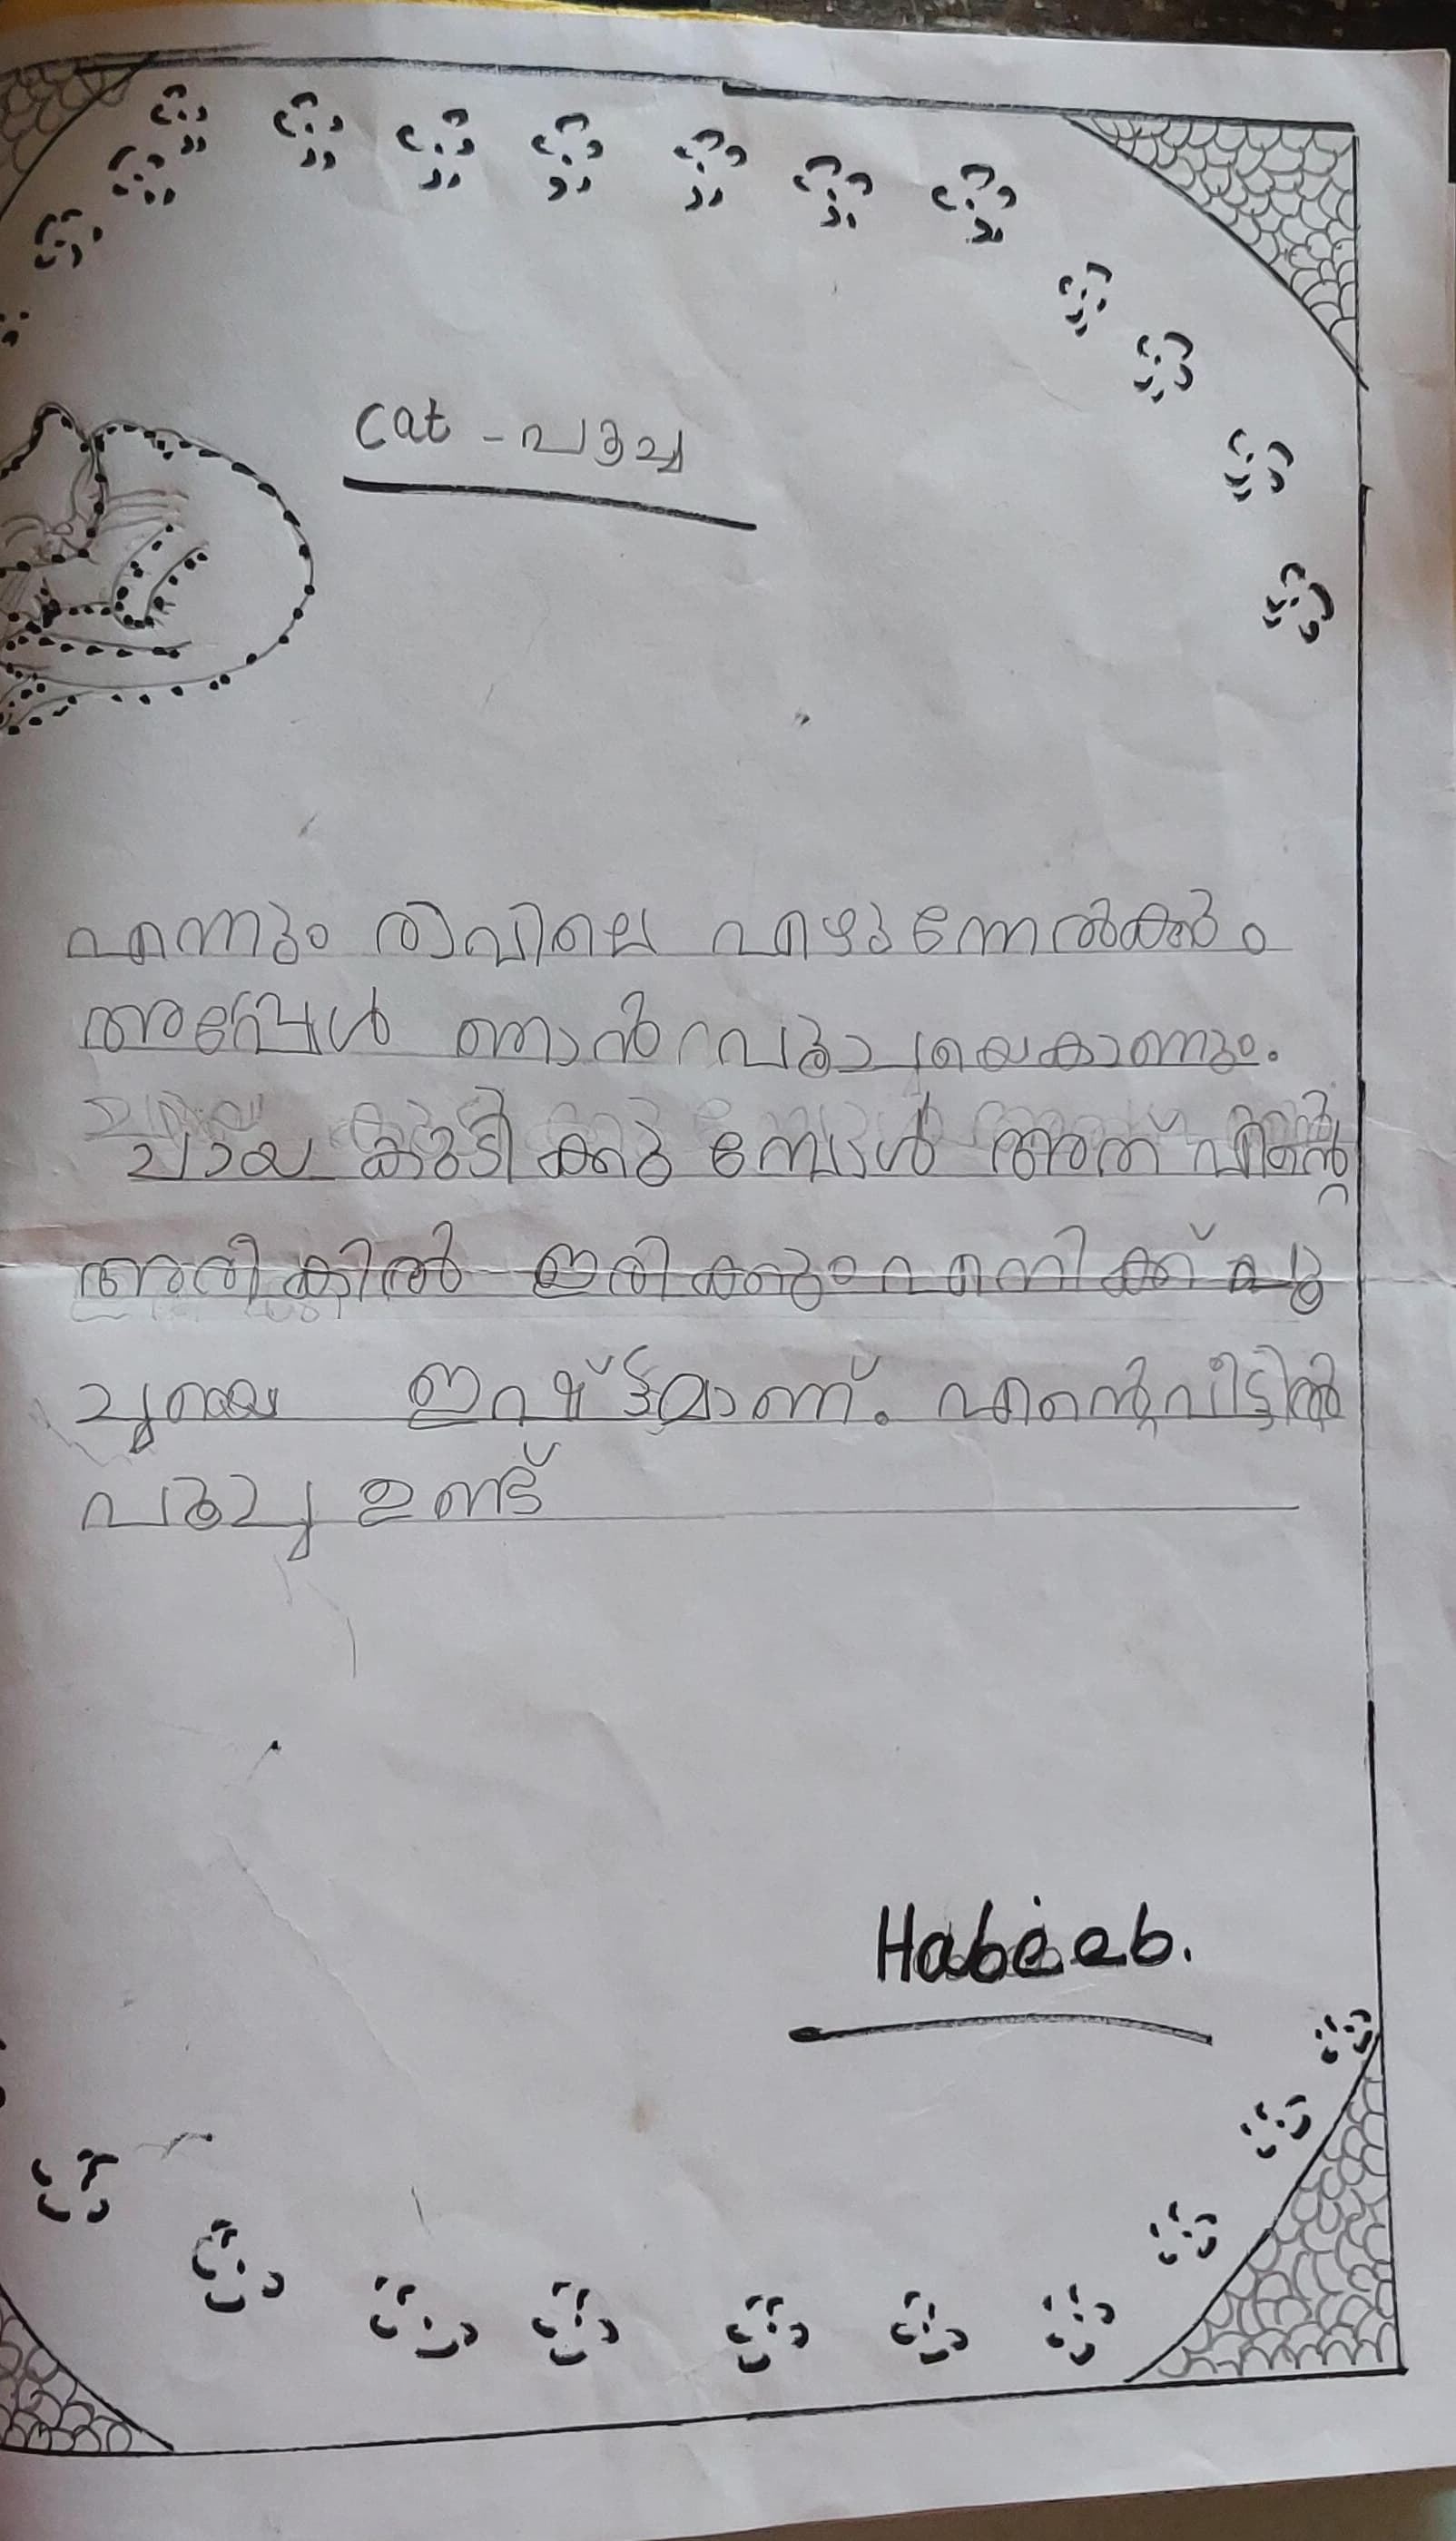 cat - പൂച്ച
എന്നും രാവിലെ എഴുന്നേൽക്കും
അപ്പോൾ ഞാൻ പൂച്ചയെകാണും.
ചായ കുടിക്കു മ്പോൾ അത് എന്റെ
അരികിൽ ഇരിക്കും എനിക്ക് പൂ
ച്ചയെ ഇഷ്ട്ടമാണ്. എന്റെവീട്ടിൽ
പൂച്ച ഉണ്ട്
Habeeb.